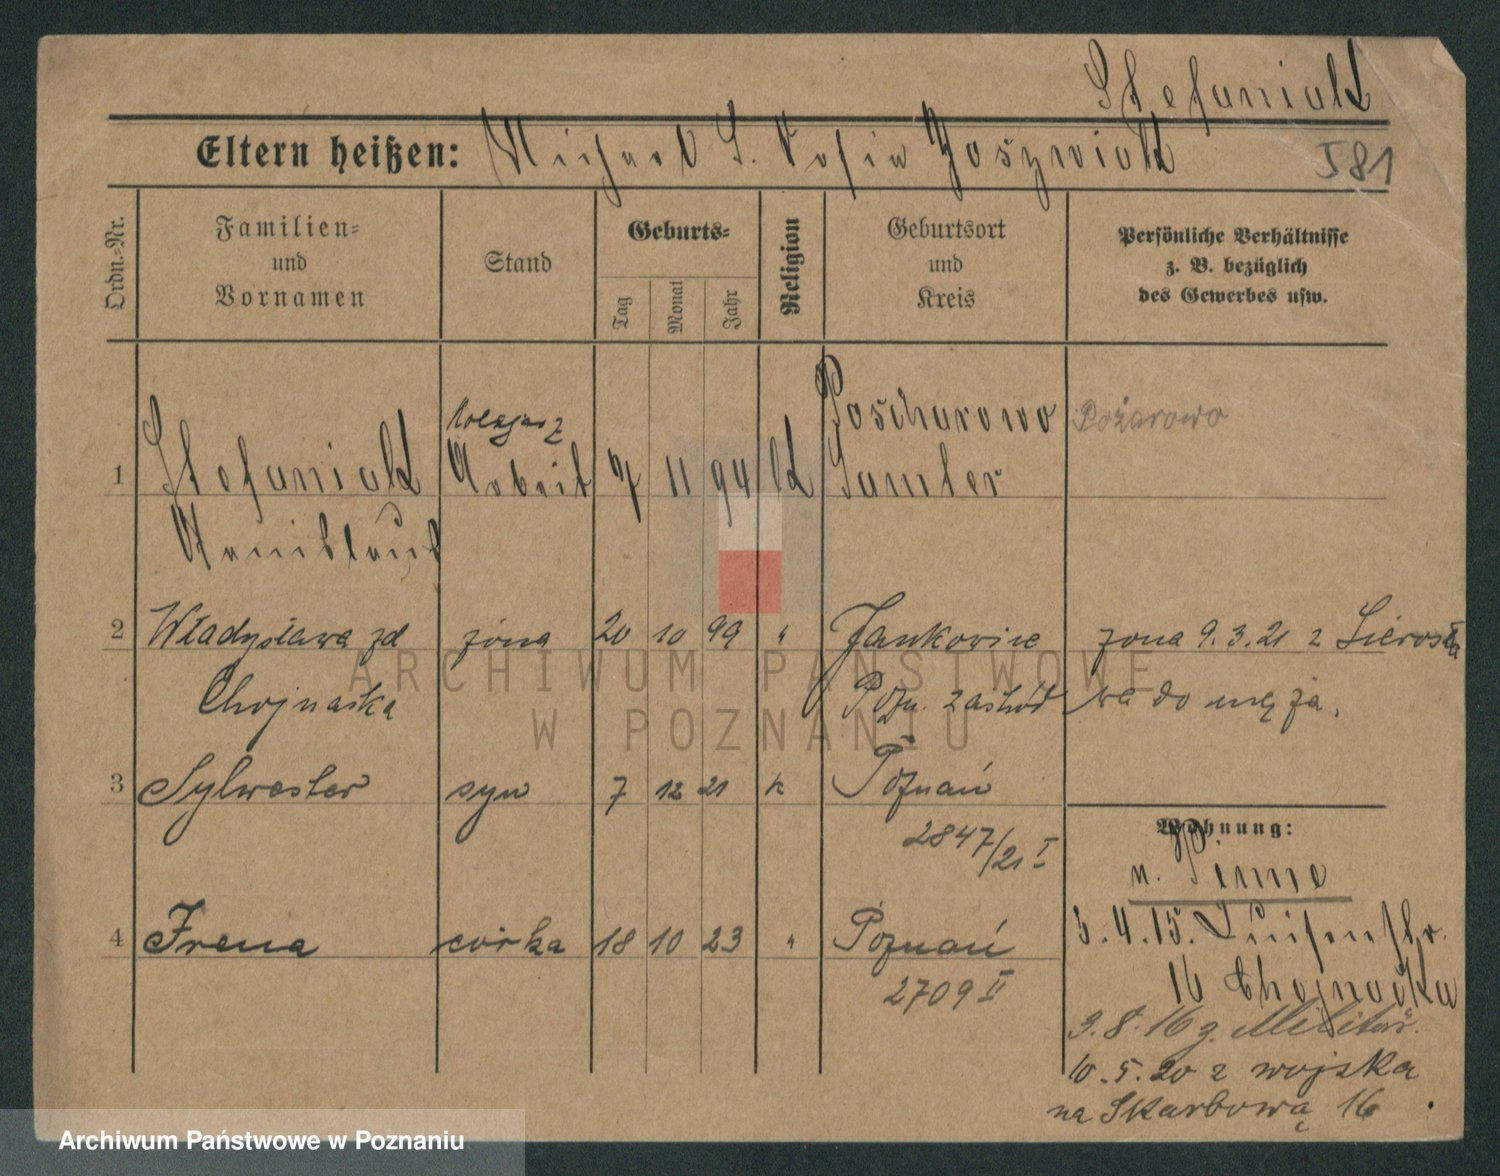 Stefaniak
Eltern heißen: Michael S. Sofia Joszwiak
581
Ordn.-Nr.
Familien-
und
Vornamen
Stand
Geburts-
Tag
Monat
Jahr
Religion
Geburtsort
und
Kreis
Persönliche Verhältnisse
z. B. bezüglich
des Gewerbes usw.
Kolejarz
Poscharowo Pożarowo
1 Stefaniak Arbeit 9 11 94 k Samter
Stanislaus
2 Władysława zd żona 20 10 99 " Jankowice żona 9.3.21 z Sierosła
Chojnacka Pozn. zachód wa do męża.
3 Sylwester syn 7 12 21 k Poznań
2847/21 I
Wohnung:
n. Pinne
4 Irena córka 18 10 23 " Poznań
2709 II
3.4.15. Luisenstr.
16 Chojnacka
3.8.16 z. Militär.
10.5.20 z wojska
na Skarbową 16
ARCHIWUM PAŃSTWOWE
W POZNANIU
Archiwum Państwowe w Poznaniu